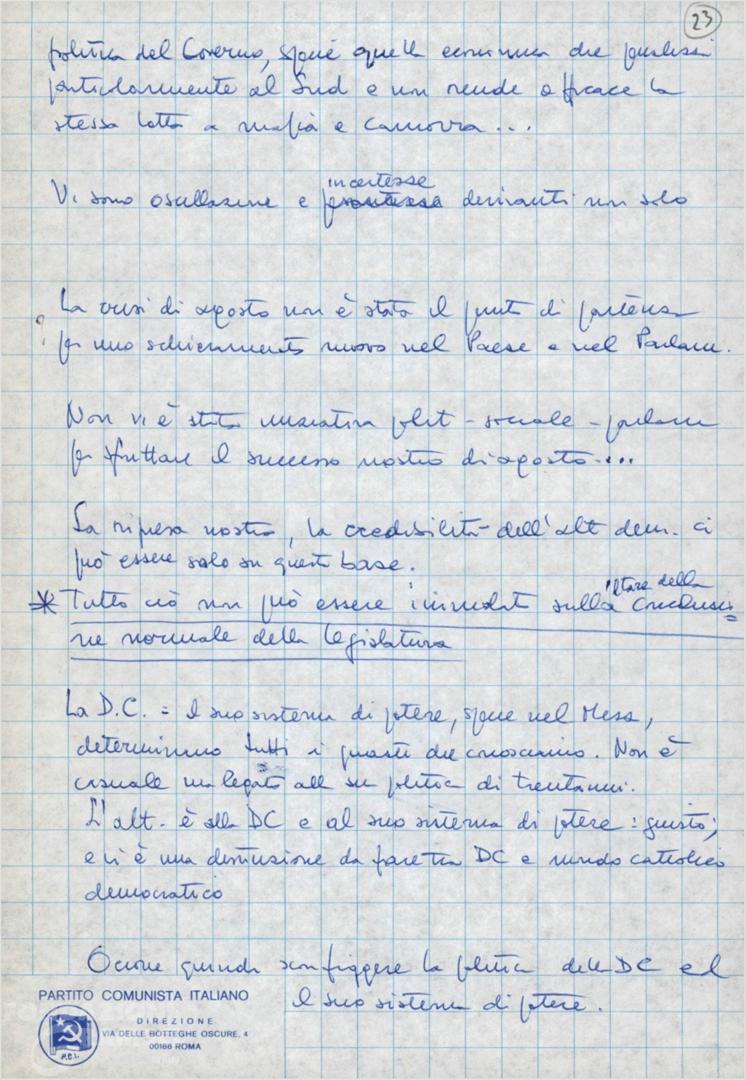 23
politica del Governo, spec quella economica che penalizza
particolarmente il Sud e non rende efficace la
stessa lotta a mafia e camorra...
incertezze
Vi sono oscillazione e derivanti non solo
La crisi di agosto non è stata il punto di partenza
? per uno schieramento nuovo nel Paese e nel Parlam.
Non vi è stata iniziativa polit - sociale - parlam
per sfruttare il successo nostro di agosto....
La ripresa nostra, la credibilità dell'alt dem. ci
può essere solo su queste base.
* Tutto ciò non può essere sulla conclusio=
ne normale della legislatura
La D.C. = il suo sistema di potere, spec nel Mezz,
determinano tutti i guasti che conosciamo. Non è
casuale ma legato alla su politica di trentanni.
L'alt. è alla DC e al suo sistema di potere: giusto;
e vi è una distinzione da fare tra DC e mondo cattolico
democratico
Occorre quindi sconfiggere la politica della DC e
il suo sistema di potere.
PARTITO COMUNISTA ITALIANO
DIREZIONE
VIA DELLE BOTTEGHE OSCURE, 4
00186 ROMA
P.C.I.